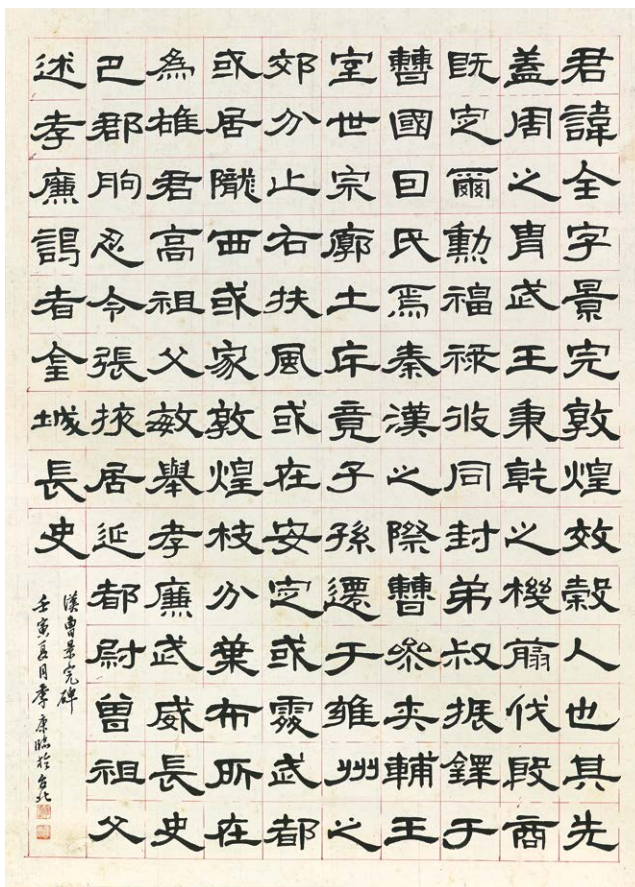 君諱全字景完敦煌效穀人也其先
蓋周之胄武王秉乾之機翦伐殷商
既定爾勳福祿攸同封弟叔振鐸于
曹國因氏焉秦漢之際曹參夾輔王
室世宗廓土斥竟子孫遷于雍州之
郊分止右扶風或在安定或處武都
或居隴西或家敦煌枝分葉布所在
為雄君高祖父敏舉孝廉武威長史
巴郡朐忍令張掖居延都尉曾祖父
述孝廉謁者金城長史
漢曹景完碑
壬寅夏月季康臨於台北